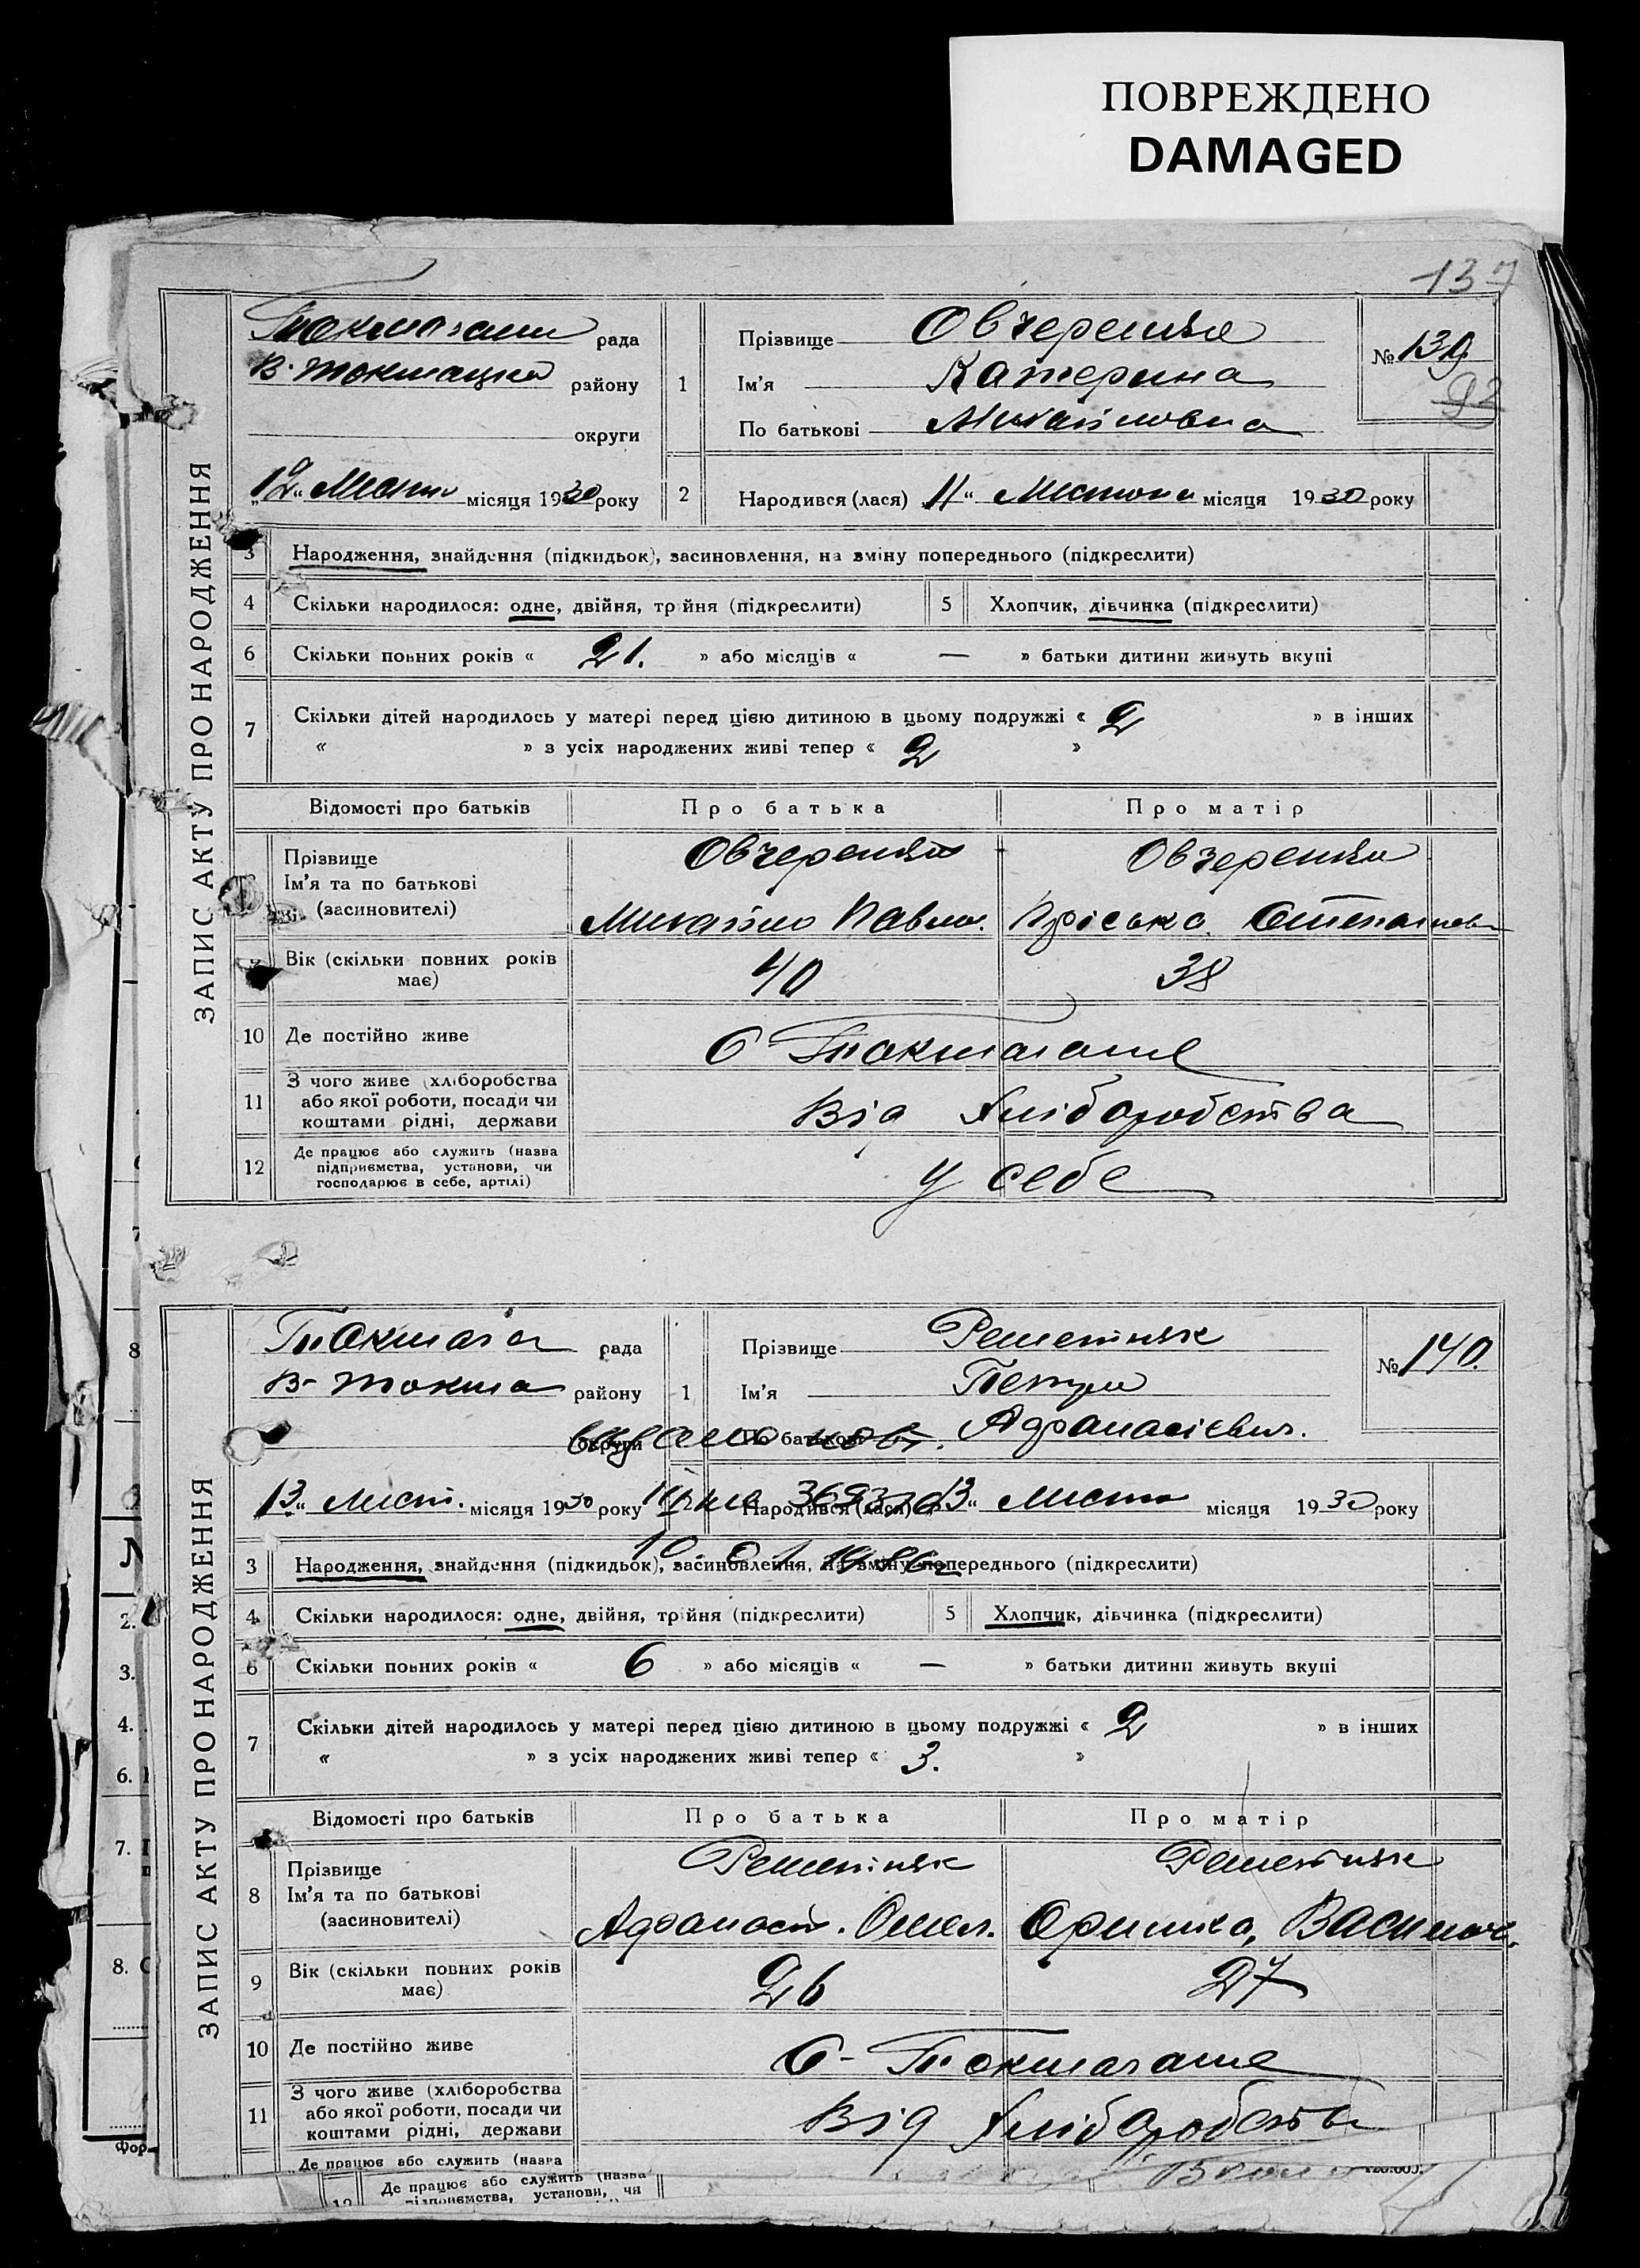 ПОВРЕЖДЕНО
DAMAGED
137
ЗАПИС АКТУ ПРО НАРОДЖЕННЯ
рада
В. Токмацька району
округи
1 Прізвище
Ім'я Катерина
По батькові Михайловна
№ 139
92
місяця 1930 року
2 Народився (лася) „11“ місяця 1930 року
3 Народження, знайдення (підкидьок), засиновлення, на зміну попереднього (підкреслити)
4 Скільки народилося: одне, двійня, трійня (підкреслити) 5 Хлопчик, дівчинка (підкреслити)
6 Скільки повних років « 21. » або місяців « — » батьки дитини живуть вкупі
7 Скільки дітей народилось у матері перед цією дитиною в цьому подружжі « 2 » в інших
« » з усіх народжених живі тепер « 2 »
Відомості про батьків Про батька Про матір
Прізвище
Ім'я та по батькові
(засиновителі)
Михайло Павло. Пріська
Вік (скільки повних років має) 40 38
10 Де постійно живе
11 З чого живе (хліборобства або якої роботи, посади чи коштами рідні, держави
Від Хліборобства
12 Де працює або служить (назва підприємства, установи, чи господарює в себе, артілі)
У себе
ЗАПИС АКТУ ПРО НАРОДЖЕННЯ
рада
В- Токма району
округи
1 Прізвище Решетняк
Ім'я Петро
По батькові Афанасієвич.
№ 140.
13 „ Лист. місяця 1930 року
Народився (лася) 13 „ Листо місяця 1930 року
3 Народження, знайдення (підкидьок), засиновлення, на зміну попереднього (підкреслити)
4 Скільки народилося: одне, двійня, трійня (підкреслити) 5 Хлопчик, дівчинка (підкреслити)
6 Скільки повних років « 6 » або місяців « — » батьки дитини живуть вкупі
7 Скільки дітей народилось у матері перед цією дитиною в цьому подружжі « 2 » в інших
« » з усіх народжених живі тепер « 3. »
Відомості про батьків Про батька Про матір
8 Прізвище Решетняк Решетняк
Ім'я та по батькові
(засиновителі)
Оришка,
9 Вік (скільки повних років має) 26 27
10 Де постійно живе
11 З чого живе (хліборобства або якої роботи, посади чи коштами рідні, держави
Від Хліборобства
Де працює або служить (назва
12 Де працює або служить (назва
підприємства, установи, чи